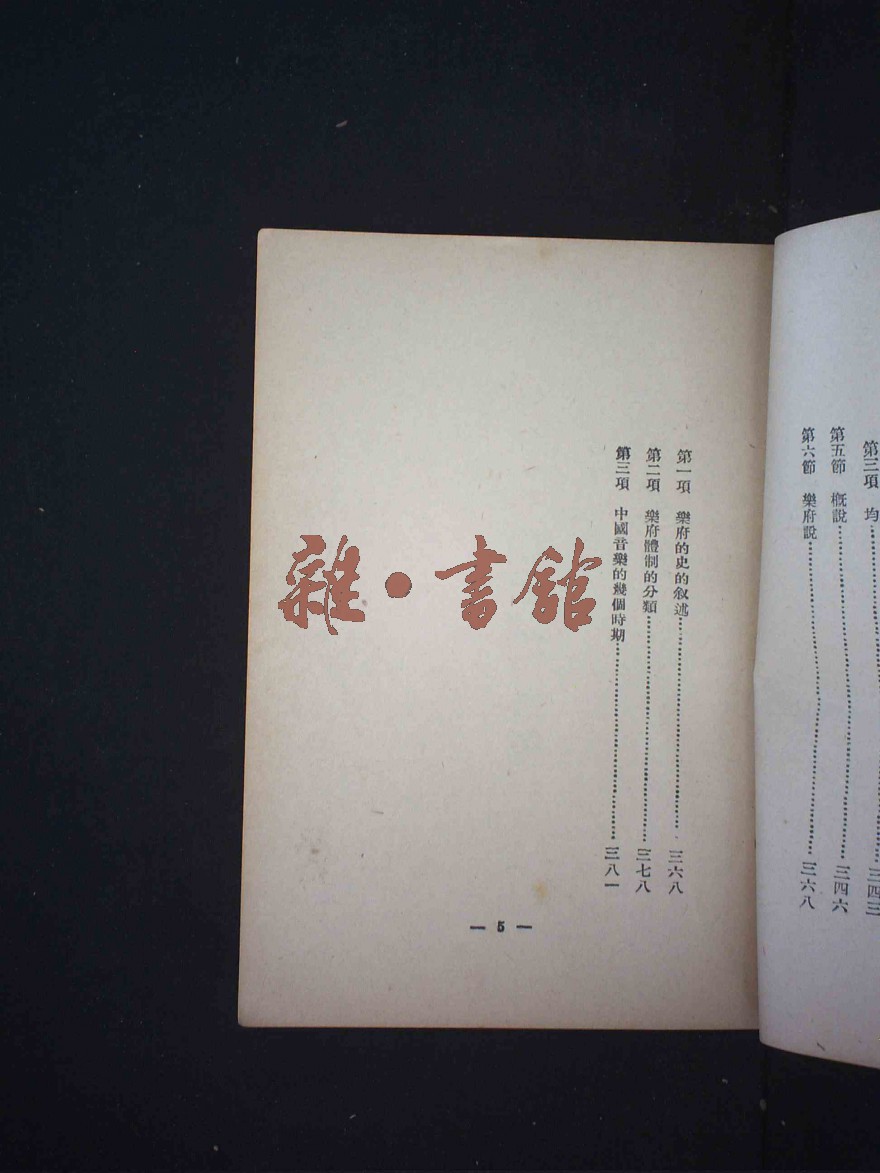 第三項　均…………三四三
第五節　概說…………三四六
第六節　樂府說…………三六八
第一項　樂府的史的叙述…………三六八
第二項　樂府體制的分類…………三七八
第三項　中國音樂的幾個時期…………三八一
— 5 —
雜·書館